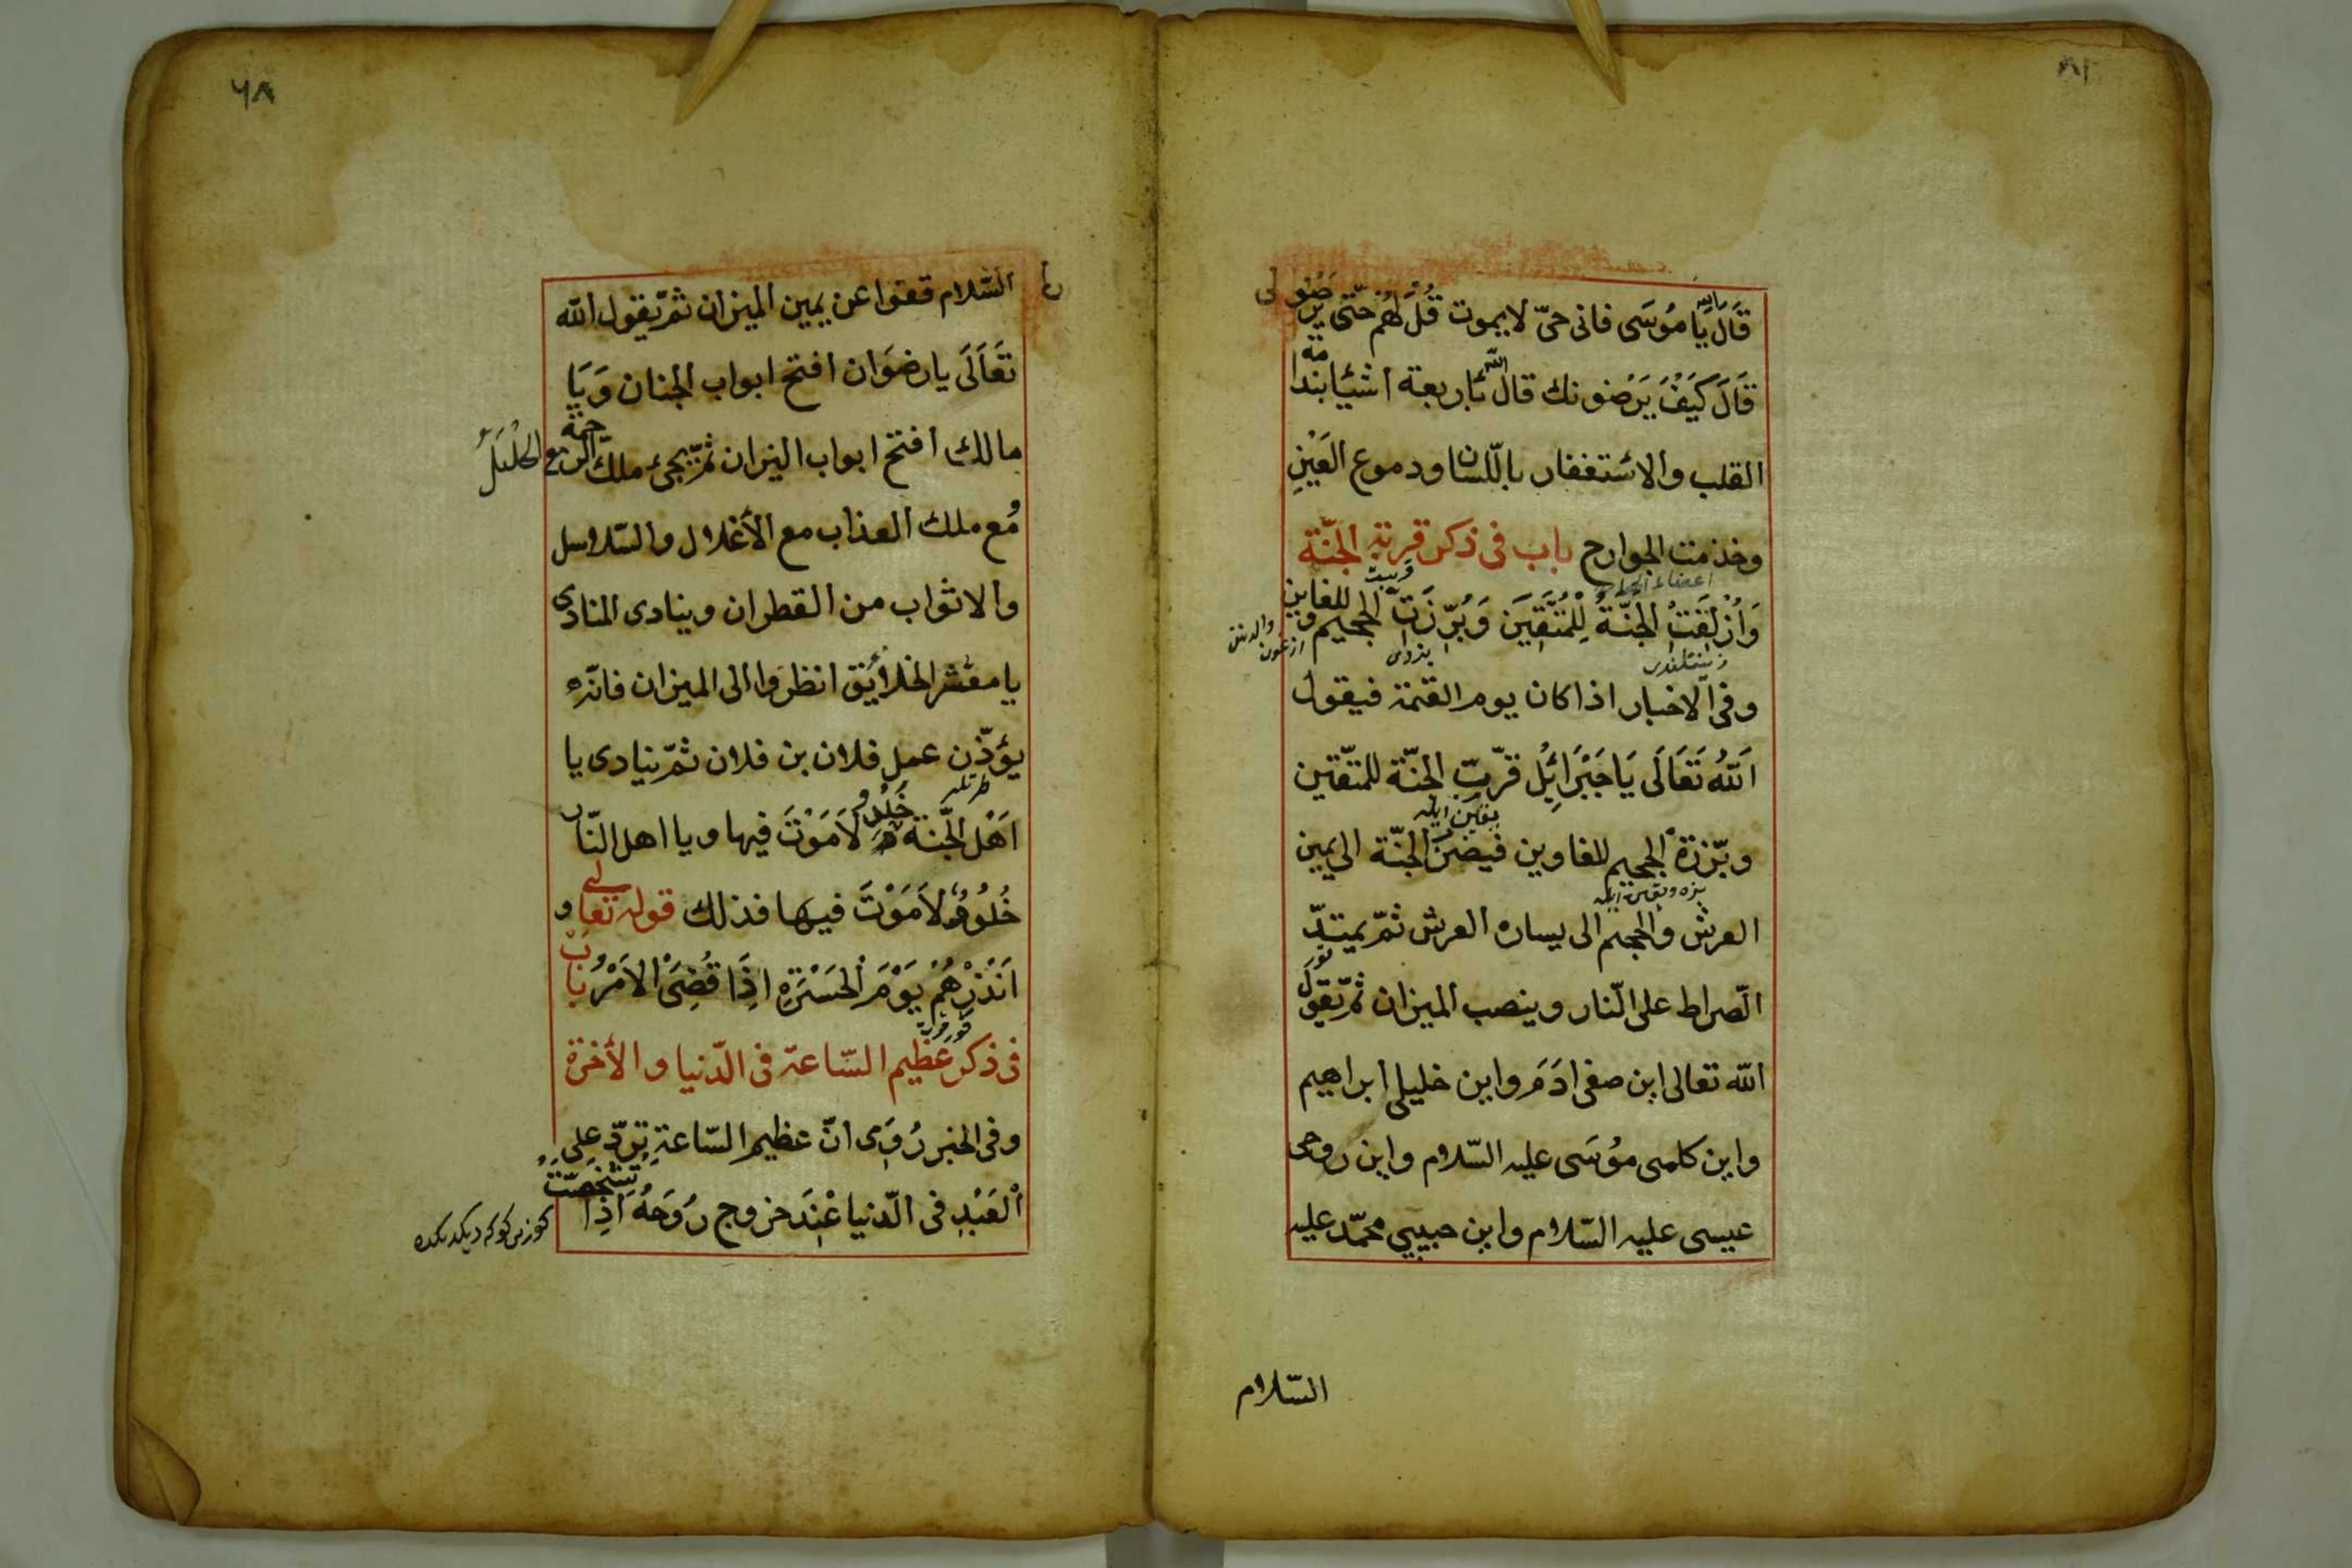 قَالَ يَا مُوسَى فانى حىّ لا يموت قُلْ لَهُمْ حَتّى يرضُو لى
قَالَ كَيَفَ يَرَضونك قال اللّه بأربعة اشئا بندامة
القلب والاستغفار باللّسان ودموع العَيْنِ
وخذمت الجوارح باب فى ذكر قربة الجنّة
وَاُزْلِفَتُ الجَنّةُ لِلْمُتَّقِيَن وَبُرّزَت الجحيم للغاوين
وفى الاخبار اذا كان يوم القيمة فيقول
اَللّهُ تَعَالَى يَا جَبَرَائِلْ قرّبت الجنّة للمتّقين
وبّرزة الجحيم للغاوين فيضن الجنّة الى يمين
العرش والجحيم الى يساره العرش ثمّ يمتدّ
الصّراط على النّار وينصب الميزان ثمّ يقول
اللّه تعالى اين صفى ادَمَ واين خليلى ابراهيم
واين كلمى مُوسَى عليه السّلام واين روحى
عيسى عليه السّلام واين حبيبي محمّد عليه
السّلام
٦٨
السّلام قفوا عن يمين الميزان ثمّ يقول اللّه
تَعَالَى يا رضوَان افتح ابواب الجنان وَيَا
مالك افتح ابواب النيران ثمّ يجئ ملك الرحمة مع الحُلْيَلُ
مُع ملك العذاب مع الأغلال والسّلاسل
والاثواب من القطران وينادى المنادى
يا معشر الخلائق انظروا الى الميزان فانّه
يؤذّن عمل فلان بن فلان ثمّ ينادى يا
اَهْل الجّنة خَلُدُو لَامَوْتَ فيها ويا اهل النّار
خُلُودُ لَامَوْتَ فيها فذلك قوله تعالى و
اَنْذِرْهُمْ يَوْمَ الْحَسْرَةِ اِذَا قُضِىَ الْاَمْرُ بَابْ
فى ذكر عظيم السّاعة فى الدّنيا والأخرة
وفى الخبر رُوِىَ انّ عظيم السّاعةِ تردّ على
اْلعَبْدِ فى الدّنيا عْنِدَ خروج رُوَحَهُ اَذِا